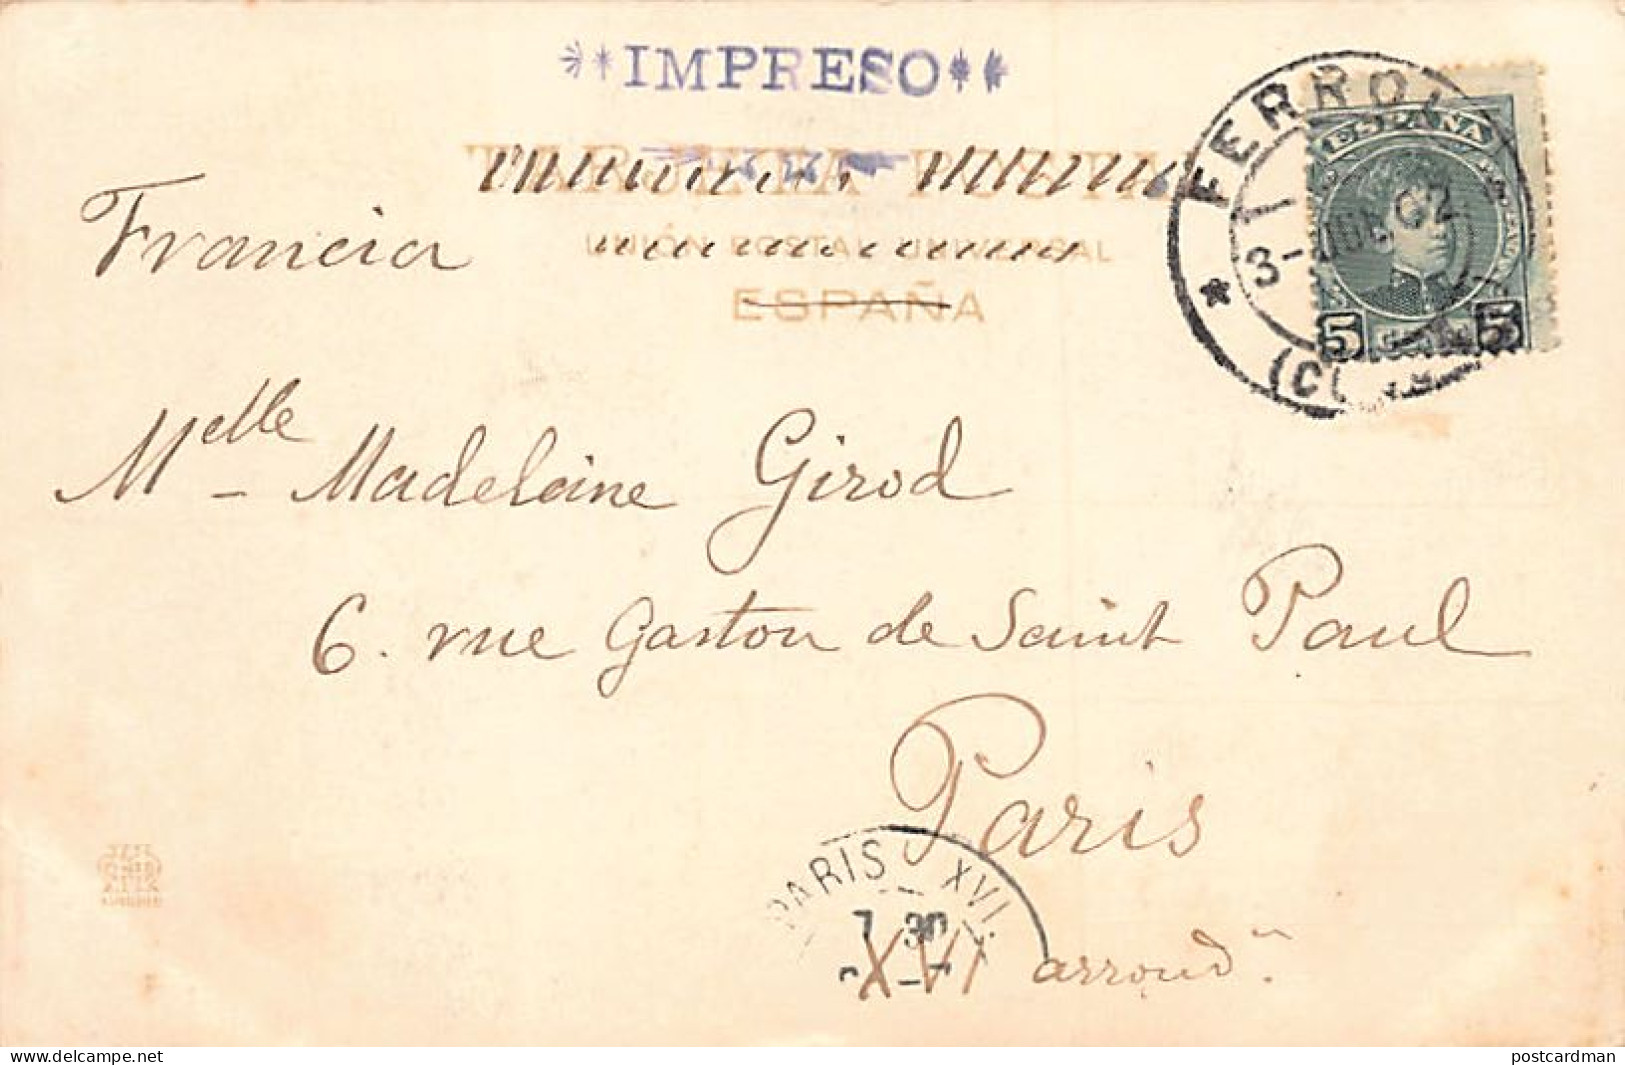 **IMPRESO**
TARJETA POSTAL
UNIÓN POSTAL UNIVERSAL
ESPAÑA
FERROL
ESPAÑA
3-
02
5 5
Francia
Melle Madeleine Girod
6. rue Gaston de Saint Paul
Paris
PARIS XVI
7 30
XVI arrondn.
delcampe.net
postcardman